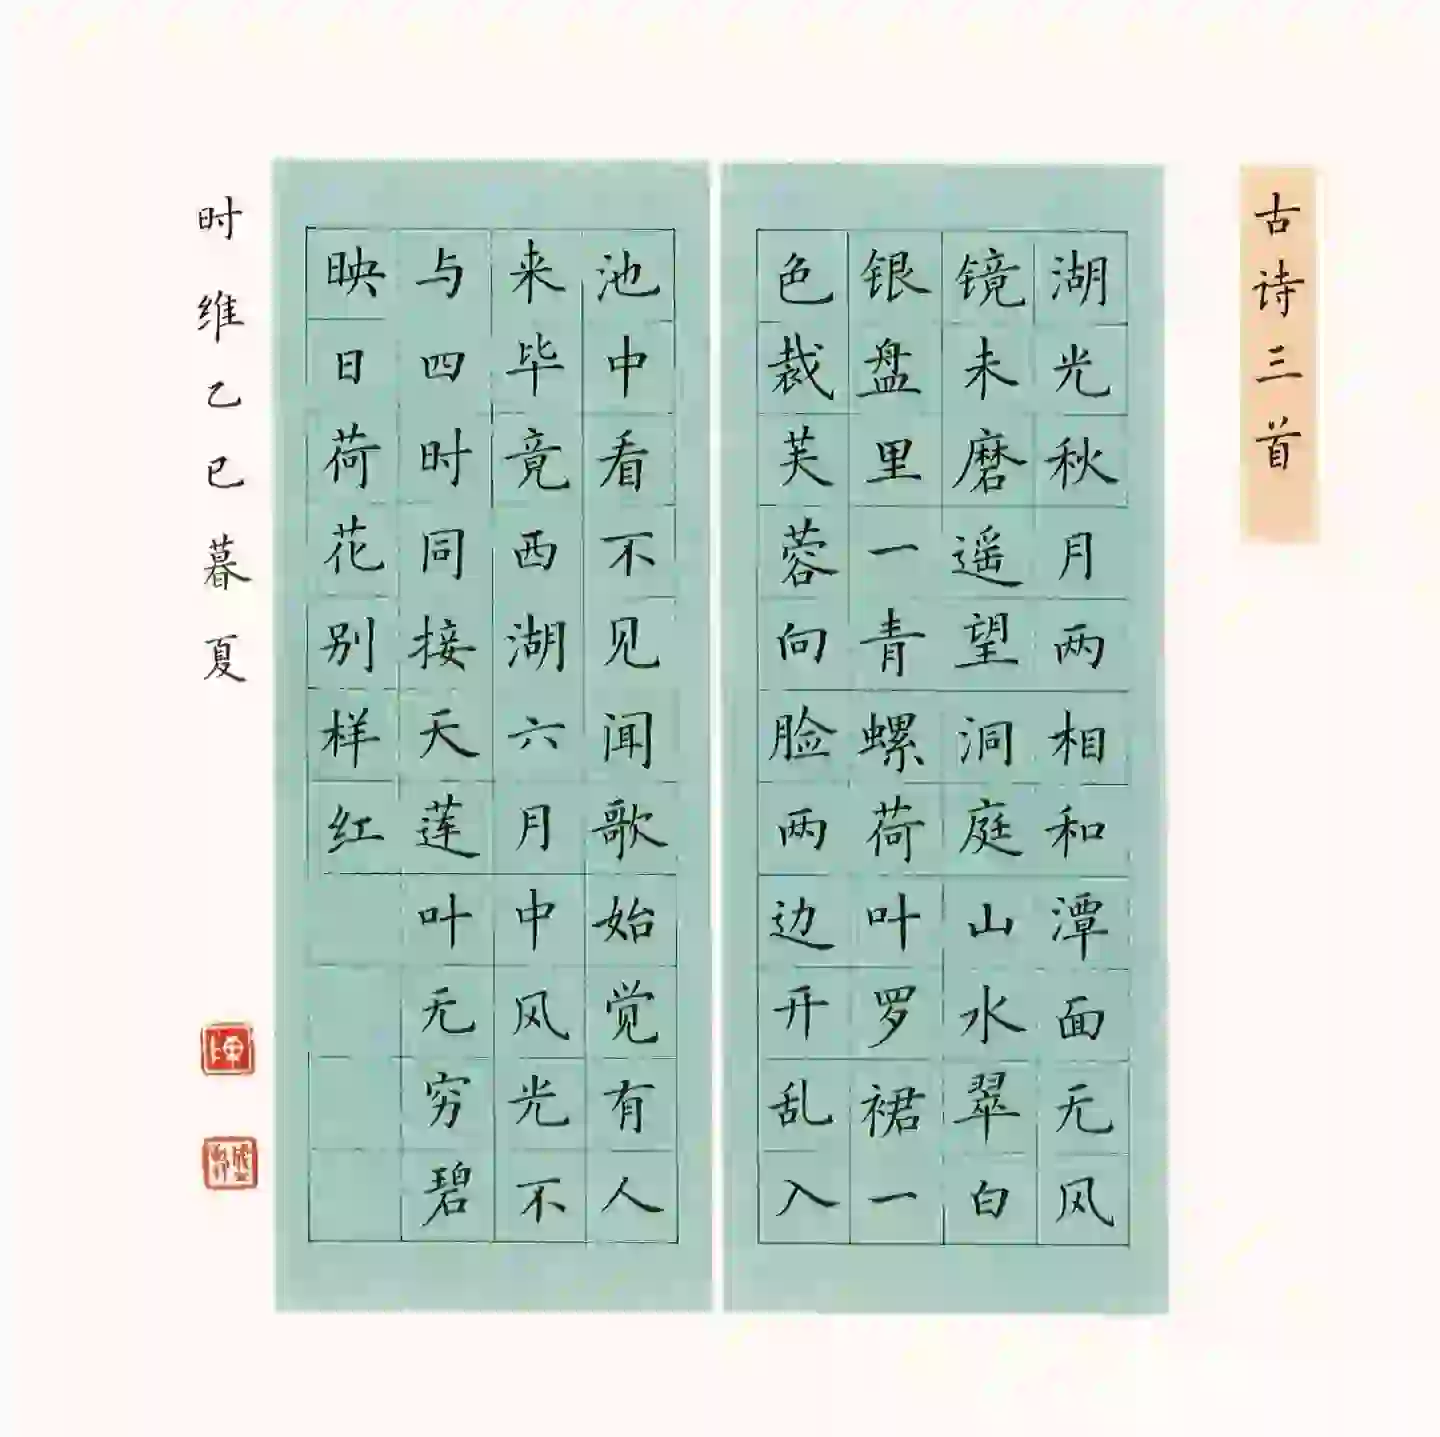 古诗三首
湖光秋月两相和潭面无风
镜未磨遥望洞庭山水翠白
银盘里一青螺荷叶罗裙一
色裁芙蓉向脸两边开乱入
池中看不见闻歌始觉有人
来毕竟西湖六月中风光不
与四时同接天莲叶无穷碧
映日荷花别样红
时维乙巳暮夏